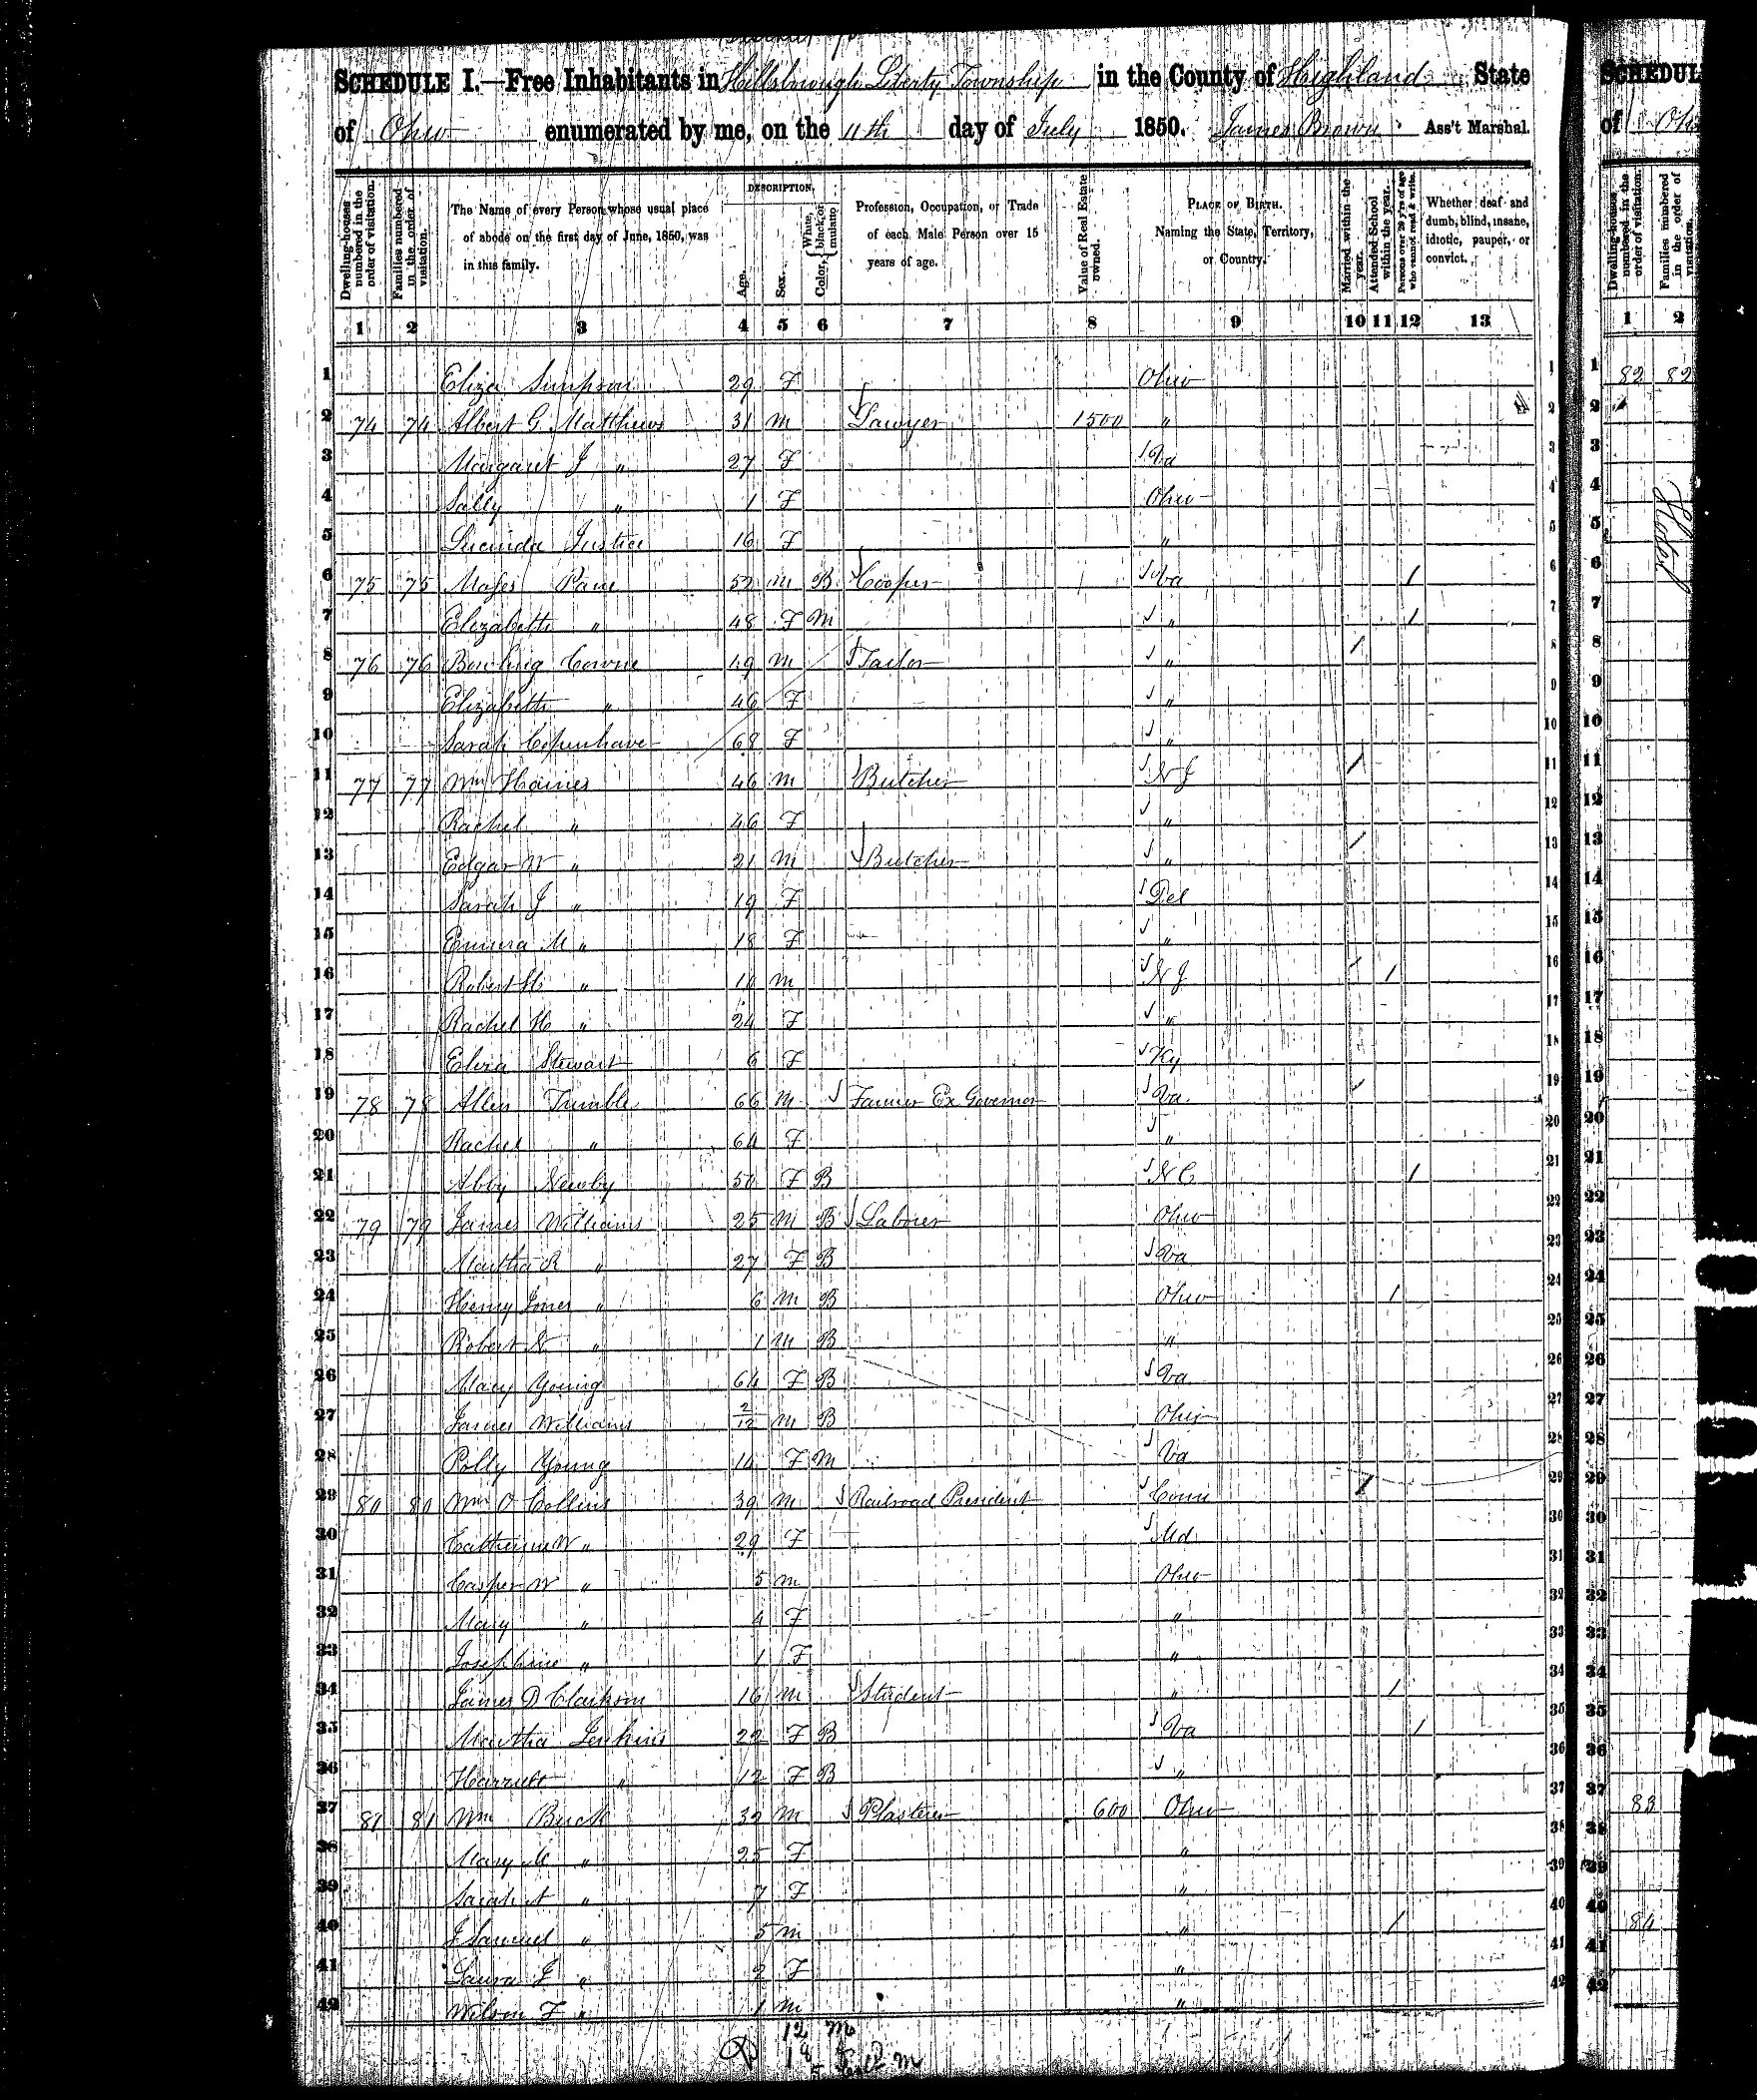 SCHEDULE I.—Free Inhabitants in Hillsborough Liberty Township in the County of Highland State
of Ohio enumerated by me, on the 11th day of July 1850. James Brown Ass't Marshal.
Dwelling-houses numbered in the order of visitation.
Families numbered in the order of visitation.
The Name of every Person whose usual place of abode on the first day of June, 1850, was in this family.
DESCRIPTION.
Age.
Sex.
Color, White, black, or mulatto
Profession, Occupation, or Trade of each Male Person over 15 years of age.
Value of Real Estate owned.
PLACE OF BIRTH. Naming the State, Territory, or Country.
Married within the year.
Attended School within the year.
Persons over 20 y'rs of age who cannot read & write.
Whether deaf and dumb, blind, insane, idiotic, pauper, or convict.
1 2 3 4 5 6 7 8 9 10 11 12 13
1 Eliza Simpson 29 F Ohio 1
2 74 74 Albert G. Matthews 31 M Lawyer 1500 " 2
3 Margaret J " 27 F Va 3
4 Sally " 1 F Ohio 4
5 Lucinda Justice 16 F " 5
6 75 75 Moses 52 M B Cooper Va / 6
7 Elizabeth " 48 F M " / 7
8 76 76 Bowling 49 M Tailor " / 8
9 Elizabeth " 46 F " 9
10 Sarah Copenhaver 68 F " 10
11 77 77 Wm Haines 46 M Butcher N J / 11
12 Rachel " 46 F " 12
13 Edgar W " 21 M Butcher " / 13
14 Sarah J " 19 F Del 14
15 Emma M " 18 F " 15
16 Robert H " M N J / / 16
17 Rachel H " 24 F " 17
18 Stewart 6 F Ky 18
19 78 78 Allen Trimble 66 M Farmer Ex Governor Va / 19
20 Rachel " 64 F " 20
21 Abby Newby 50 F B N C / 21
22 79 79 James Williams 25 M B Laborer Ohio 22
23 Martha R " 27 F B Va 23
24 Henry Jones " 6 M B Ohio / 24
25 Robert N " 1 M B " 25
26 Mary Young 64 F B Va 26
27 James Williams 2/12 M B Ohio 27
28 Polly Young F M Va 28
29 80 80 Wm O Collins 39 M Railroad President Conn / 29
30 Catherine W " 29 F Md 30
31 Casper W " 5 M Ohio 31
32 Mary " 4 F " 32
33 Josephine " 1 F " 33
34 James D Clarkson 16 M Student " / 34
35 Martha Jenkins 22 F B Va / 35
36 Harriett " 12 F B " 36
37 81 81 Wm Buck 32 M Plasterer 600 Ohio 37
38 Mary " 25 F " 38
39 Sarah A " 7 F " 39
40 J Samuel " 5 M " / 40
41 Laura J " 2 F " 41
42 Wilson F " 1 M " 42
12 M
18
SCHEDUL
of Ohi
Dwelling-houses numbered in the order of visitation.
Families numbered in the order of visitation.
1 2
82 82
Hotel
83
84